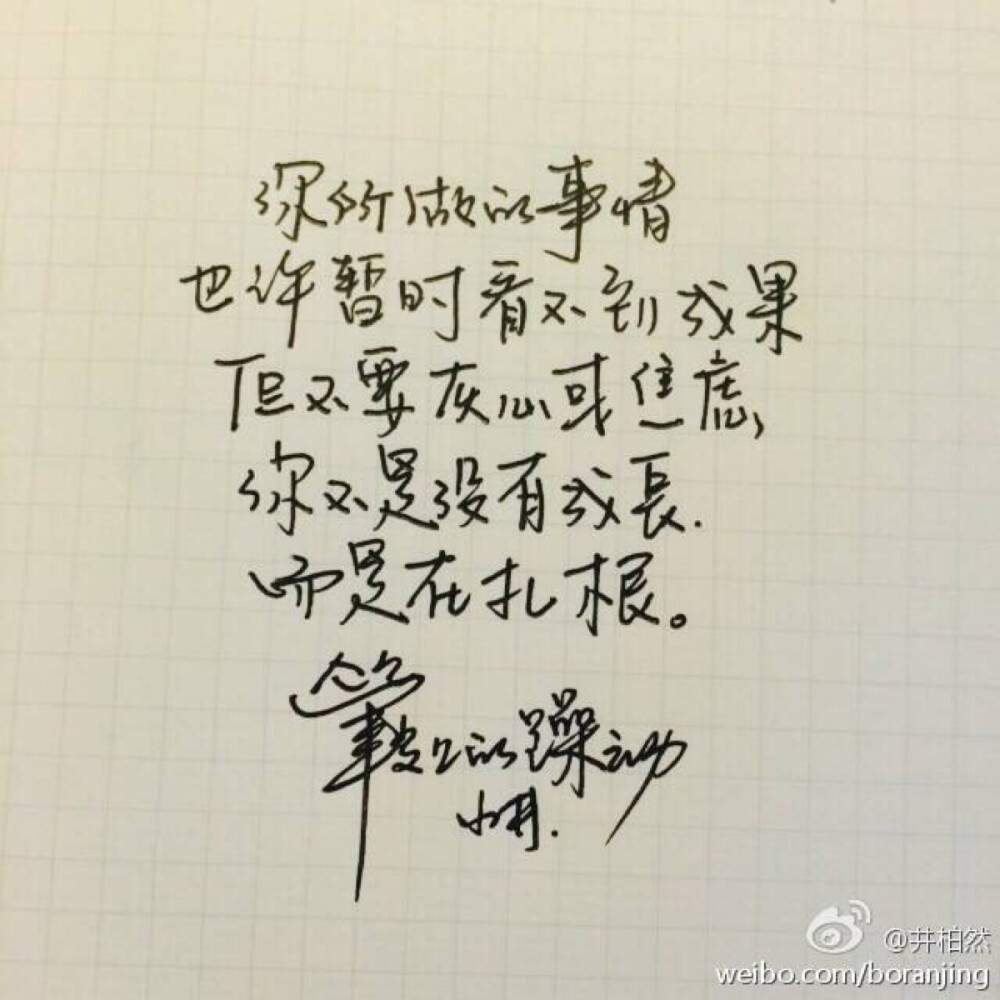 你所做的事情
也许暂时看不到成果
但不要灰心或焦虑,
你不是没有成長.
而是在扎根。
筆敏的躁动
小井.
@井柏然
weibo.com/boranjing